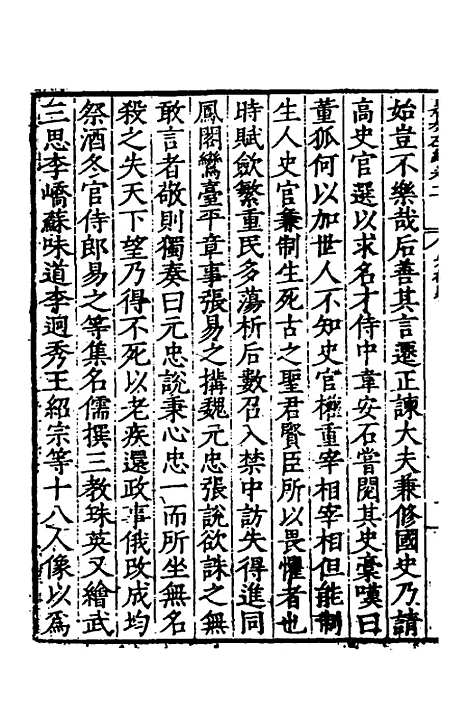 始豈不樂哉后善其言遷正諫大夫兼修國史乃請
高史官選以求名才侍中韋安石嘗閱其史稾嘆曰
董狐何以加世人不知史官權重宰相宰相但能制
生人史官兼制生死古之聖君賢臣所以畏懼者也
時賦歛繁重民多蕩析后數召入禁中訪失得進同
鳳閣鸞臺平章事張易之搆魏元忠張說欲誅之無
敢言者敬則獨奏曰元忠說秉心忠一而所坐無名
殺之失天下望乃得不死以老疾還政事俄改成均
祭酒冬官侍郎易之等集名儒撰三教珠英又繪武
三思李嶠蘇味道李逈秀王紹宗等十八人像以爲